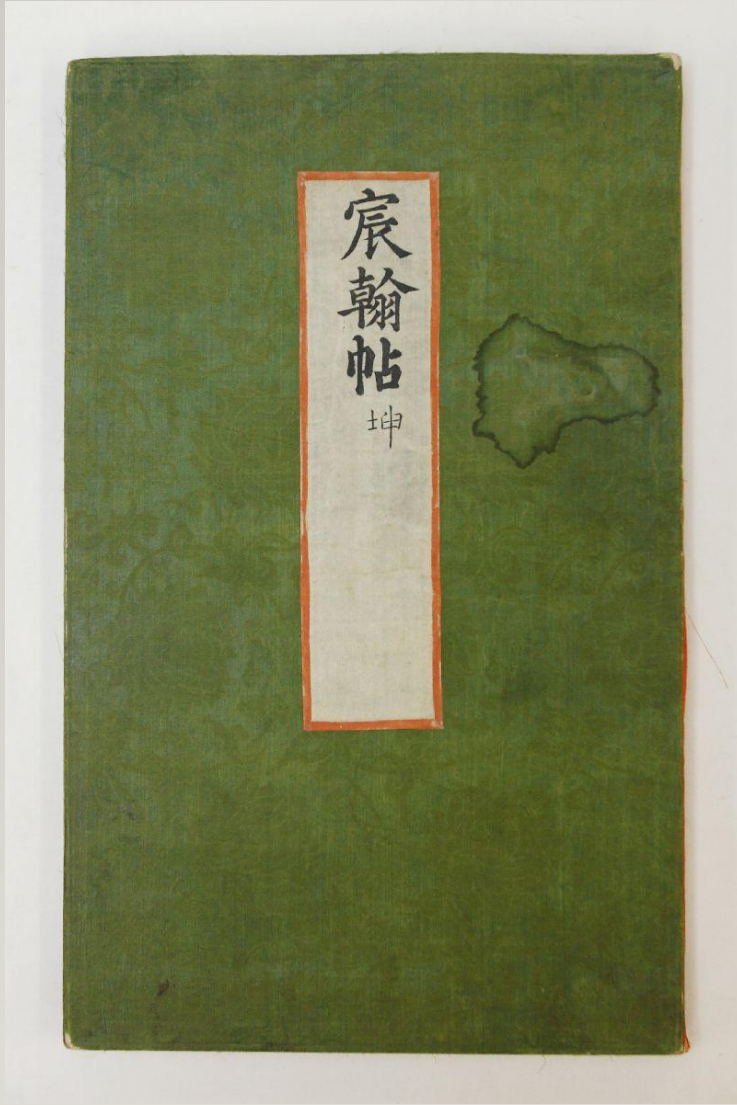 宸翰帖 坤